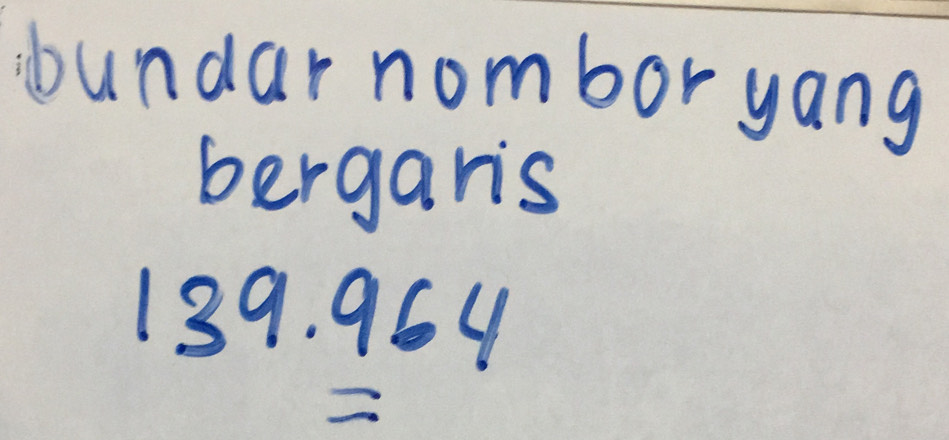 bundar nombor yang
bergaris
139.964